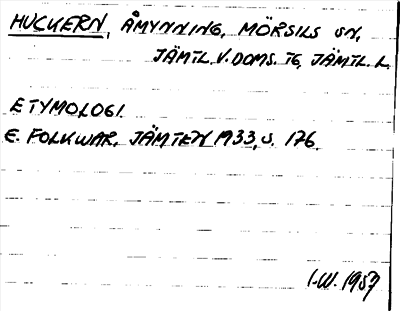 HUCKERN, ÅMYNNING, MÖRSILS SN,
JÄMTL. V. DOMS. TG, JÄMTL. L.
ETYMOLOGI.
E. FOLKWAR, JÄMTEN 1933, S. 176.
I-W. 1957